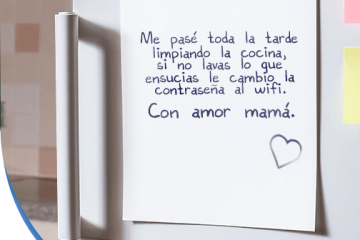 Me pasé toda la tarde
limpiando la cocina,
si no lavas lo que
ensucias le cambio la
contraseña al wifi.
Con amor mamá.